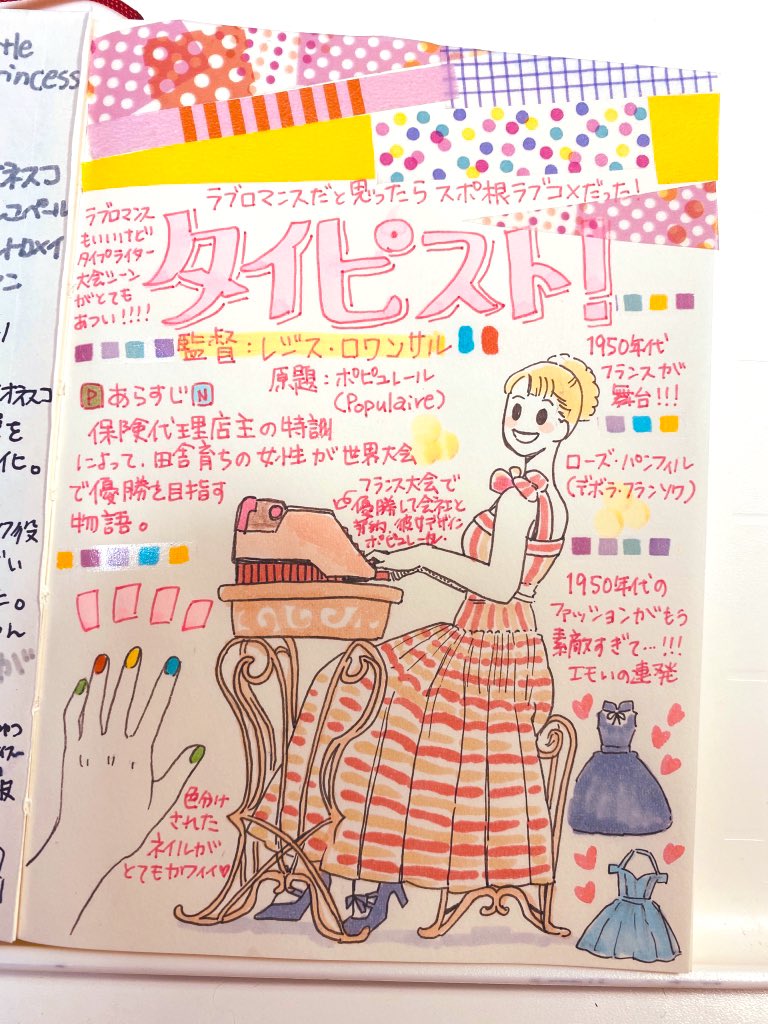 ラブロマンスだと思ったら スポ根ラブコメだった!
タイピスト!
ラブロマンス
もいいけど
タイプライター
大会シーン
がとても
あつい!!!!
監督:レジス・ロワンサル
原題:ポピュレール
(Populaire)
1950年代
フランスが
舞台!!!
P あらすじ N
保険代理店主の特訓
によって、田舎育ちの女性が世界大会
で優勝を目指す
物語。
フランス大会で
優勝して会社と
契約、彼女デザイン
ポピュレール
ローズ・パンフィル
(デボラ・フランソワ)
1950年代の
ファッションがもう
素敵すぎて…!!!
エモいの連発
色分け
された
ネイルが
とてもカワイイ♡
rincess
ネスコ
コペール
オネスコ
を
化。
役